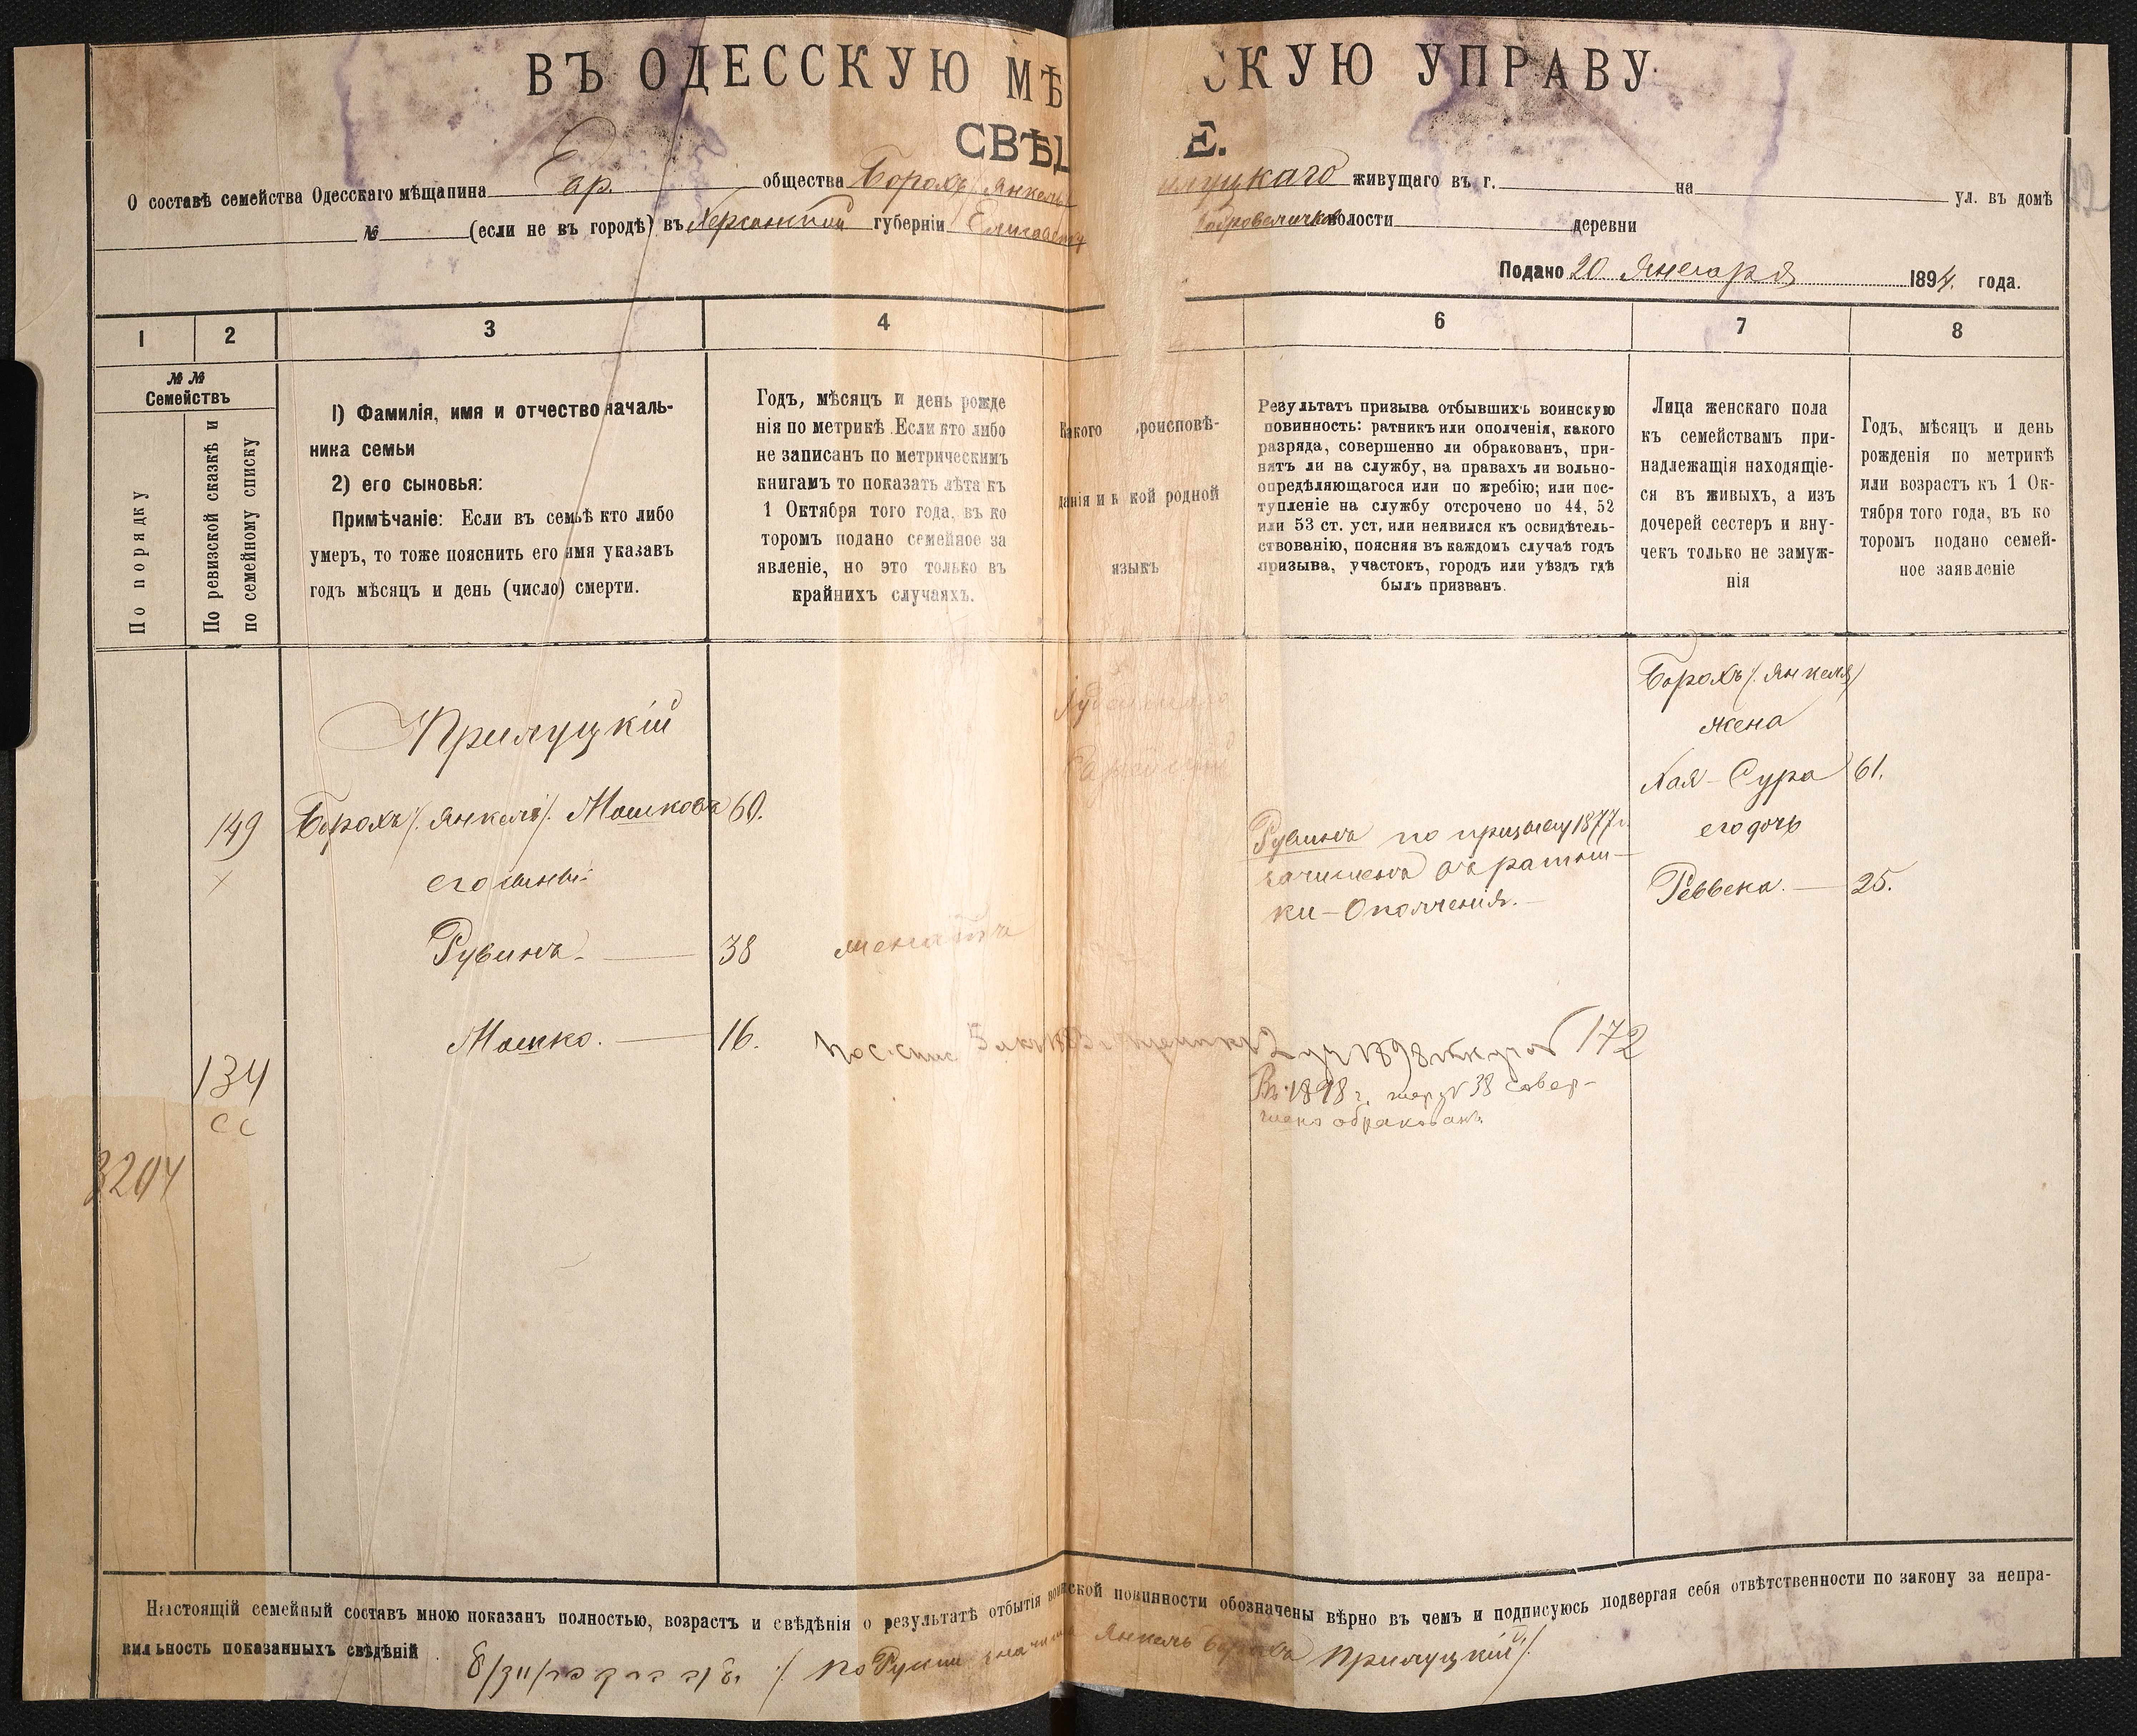 ВЪ ОДЕССКУЮ МѢ СКУЮ УПРАВУ
СВѢД Е.
О составѣ семейства Одесскаго мѣщанина Ев общества Борохъ Янкель луцкаго живущаго въ г. на ул. въ домѣ
№ (если не въ городѣ) въ Херсонской губерніи Елисавет Добровеличков волости деревни
Подано 20 Января 1894 года.
1 2 3 4 6 7 8
№ № Семействъ
По порядку
По ревизской сказкѣ и по семейному списку
1) Фамилія, имя и отчество началь-
ника семьи
2) его сыновья:
Примѣчаніе: Если въ семьѣ кто либо
умеръ, то тоже пояснить его имя указавъ
годъ мѣсяцъ и день (число) смерти.
Годъ, мѣсяцъ и день рожде
нія по метрикѣ. Если кто либо
не записанъ по метрическимъ
книгамъ то показать лѣта къ
1 Октября того года, въ ко
торомъ подано семейное за
явленіе, но это только въ
крайнихъ случаяхъ.
Какого роисповѣ-
данія и к кой родной
языкъ
Результатъ призыва отбывшихъ воинскую
повинность: ратникъ или ополченія, какого
разряда, совершенно ли обракованъ, при-
нятъ ли на службу, на правахъ ли вольно-
опредѣляющагося или по жребію; или пос-
тупленіе на службу отсрочено по 44, 52
или 53 ст. уст. или неявился къ освидѣтель-
ствованію, поясняя въ каждомъ случаѣ годъ
призыва, участокъ, городъ или уѣздъ гдѣ
былъ призванъ.
Лица женскаго пола
къ семействамъ при-
надлежащія находящіе-
ся въ живыхъ, а изъ
дочерей сестеръ и вну-
чекъ только не замуж-
нія
Годъ, мѣсяцъ и день
рожденія по метрикѣ
или возрастъ къ 1 Ок-
тября того года, въ ко
торомъ подано семей-
ное заявленіе
Прилуцкій
149 Борохъ /Янкель/ Мошковъ 60.
его сыновья:
Рувинъ 38 женатъ
Мошко. 16.
134
3204
Іудейскаго
Еврейскій
Рувинъ по призыву 1877 г.
зачисленъ въ ратни-
ки Ополченія.
1898 172
Въ 1898 г. 38 совер-
шенно обракованъ.
Борохъ /Янкеля/
жена
Хая-Сура 61.
его дочь
Реввека. 25.
Настоящій семейный составъ мною показанъ полностью, возрастъ и свѣдѣнія о результатѣ отбытія воинской повинности обозначены вѣрно въ чемъ и подписуюсь подвергая себя отвѣтственности по закону за непра-
вильность показанныхъ свѣдѣній
по Русски значитъ Янкель Борохъ Прилуцкій